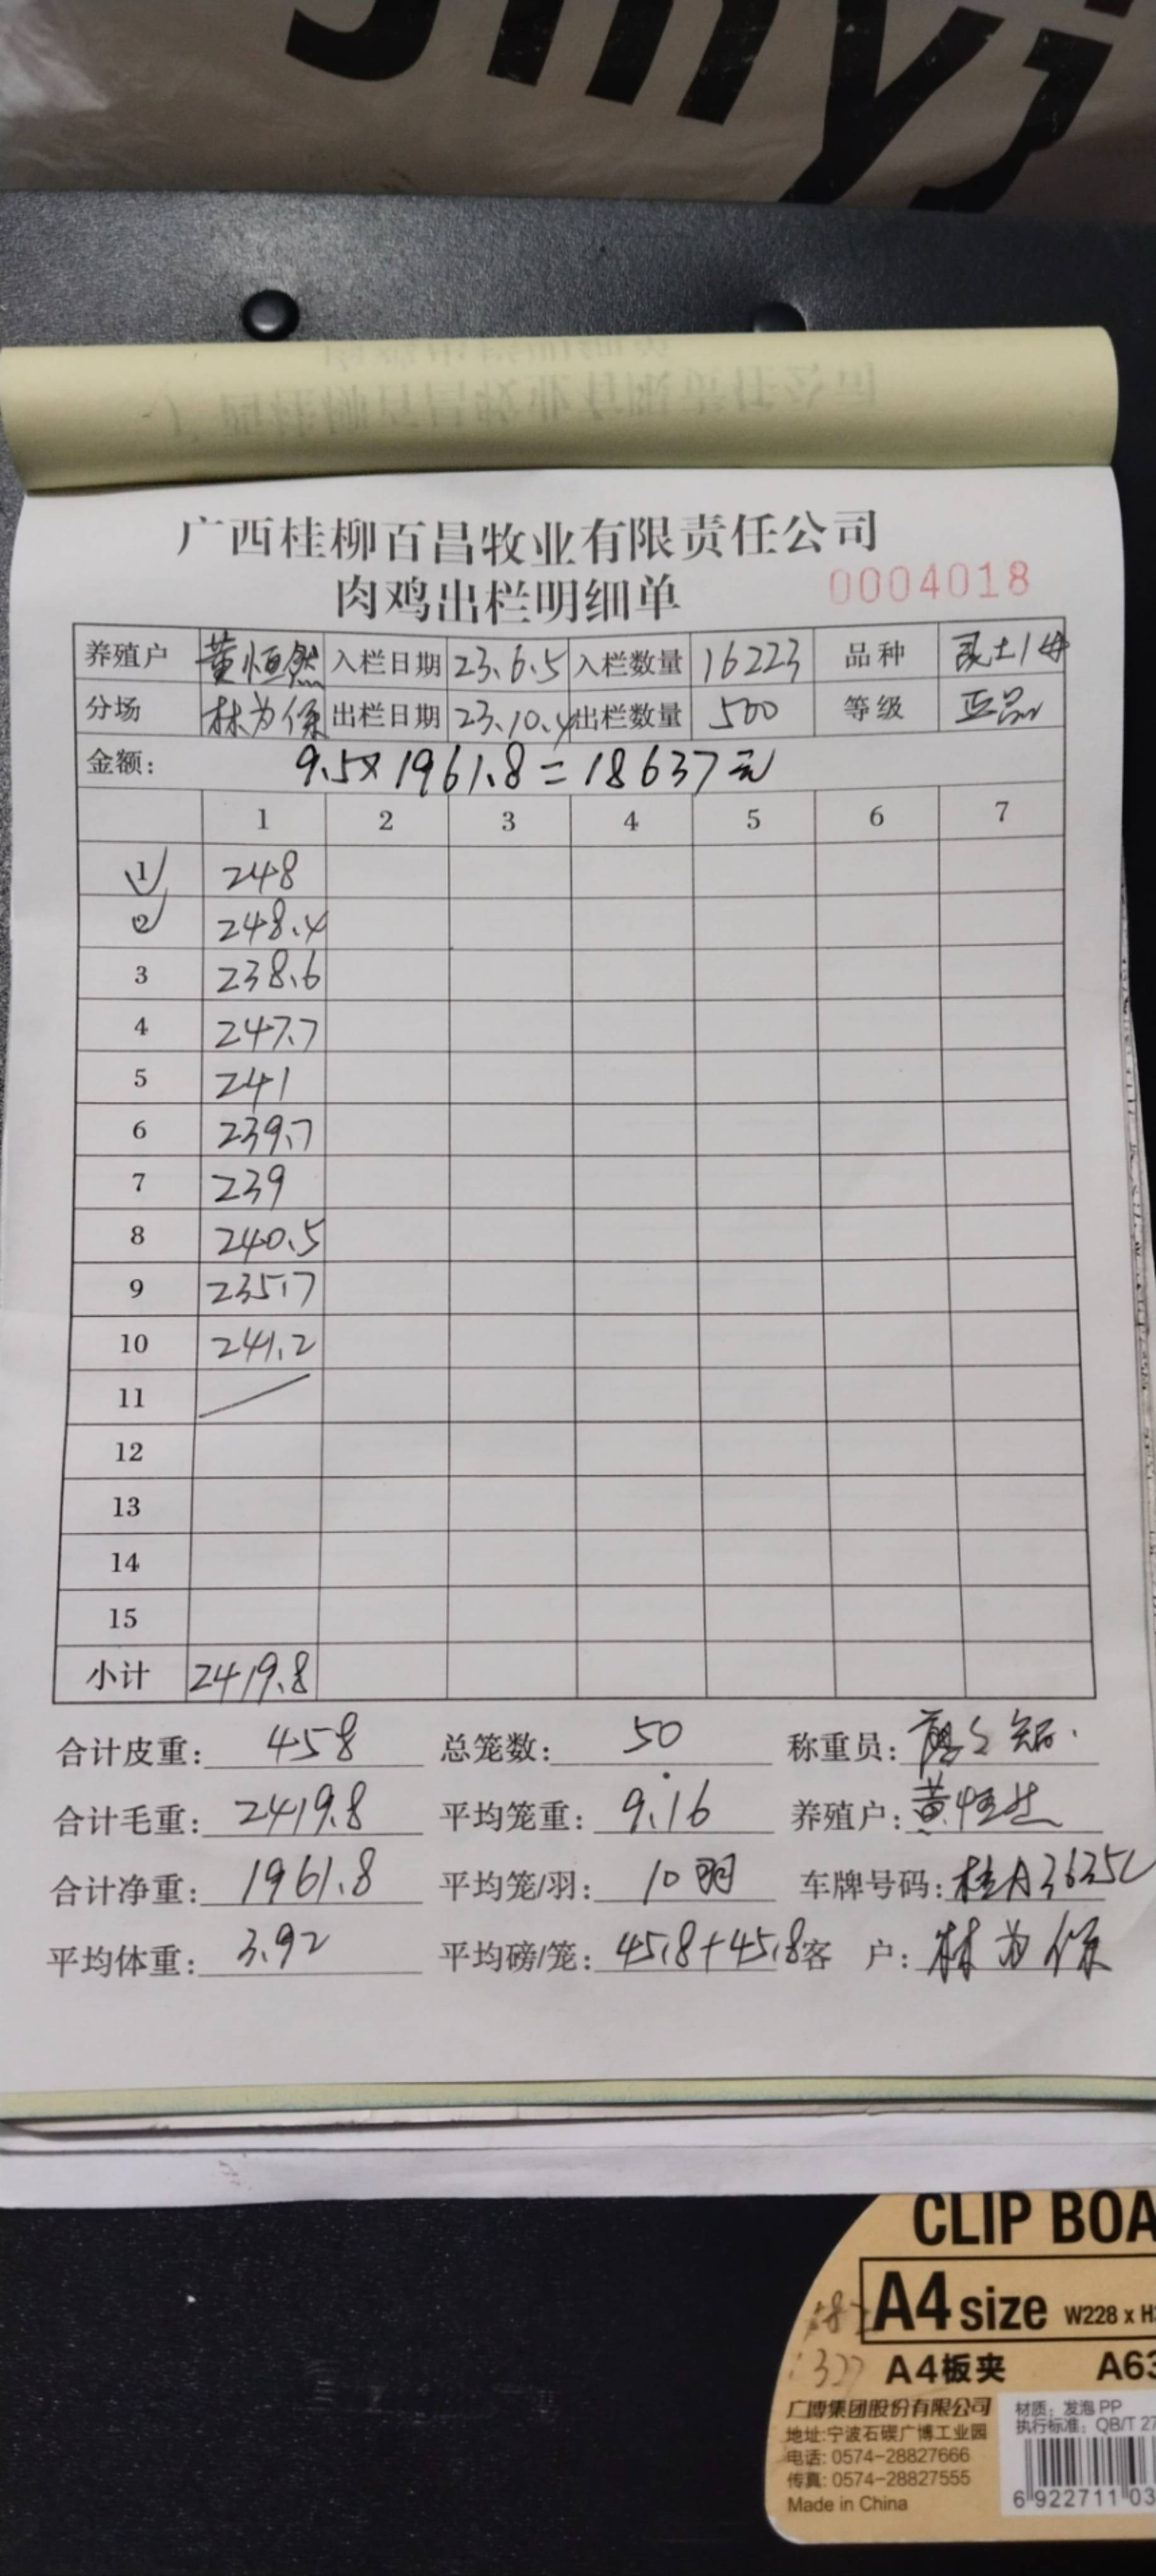 Jinyi
广西桂柳百昌牧业有限责任公司
肉鸡出栏明细单 0004018
养殖户 黄恒然 入栏日期 23.6.5 入栏数量 16223 品种 灵土1母
分场 林为保 出栏日期 23.10.4 出栏数量 500 等级 正品
金额: 9.5×1961.8=18637元
1 2 3 4 5 6 7
1 248
2 248.4
3 238.6
4 247.7
5 241
6 239.7
7 239
8 240.5
9 235.7
10 241.2
11
12
13
14
15
小计 2419.8
合计皮重: 458 总笼数: 50 称重员:
合计毛重: 2419.8 平均笼重: 9.16 养殖户: 黄恒然
合计净重: 1961.8 平均笼/羽: 10羽 车牌号码: 桂A3635L
平均体重: 3.92 平均磅/笼: 45.8+45.8 客户: 林为保
CLIP BOA
A4 size W228 x H
A4板夹 A63
广博集团股份有限公司
地址:宁波石碶广博工业园
电话: 0574-28827666
传真: 0574-28827555
Made in China
材质: 发泡 PP
执行标准: QB/T 27
6 922711 03